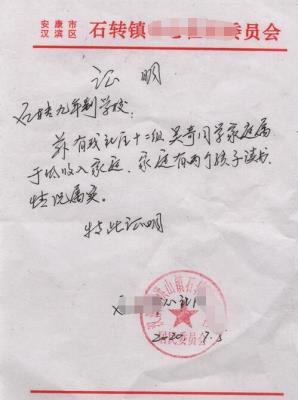 安康市
汉滨区 石转镇 委员会
证明
石转九年制学校:
兹有我社区十二组吴奇同学家庭属
于低收入家庭、家庭有两个孩子读书.
情况属实。
特此证明
山镇石
居民委员会
2020.9.5